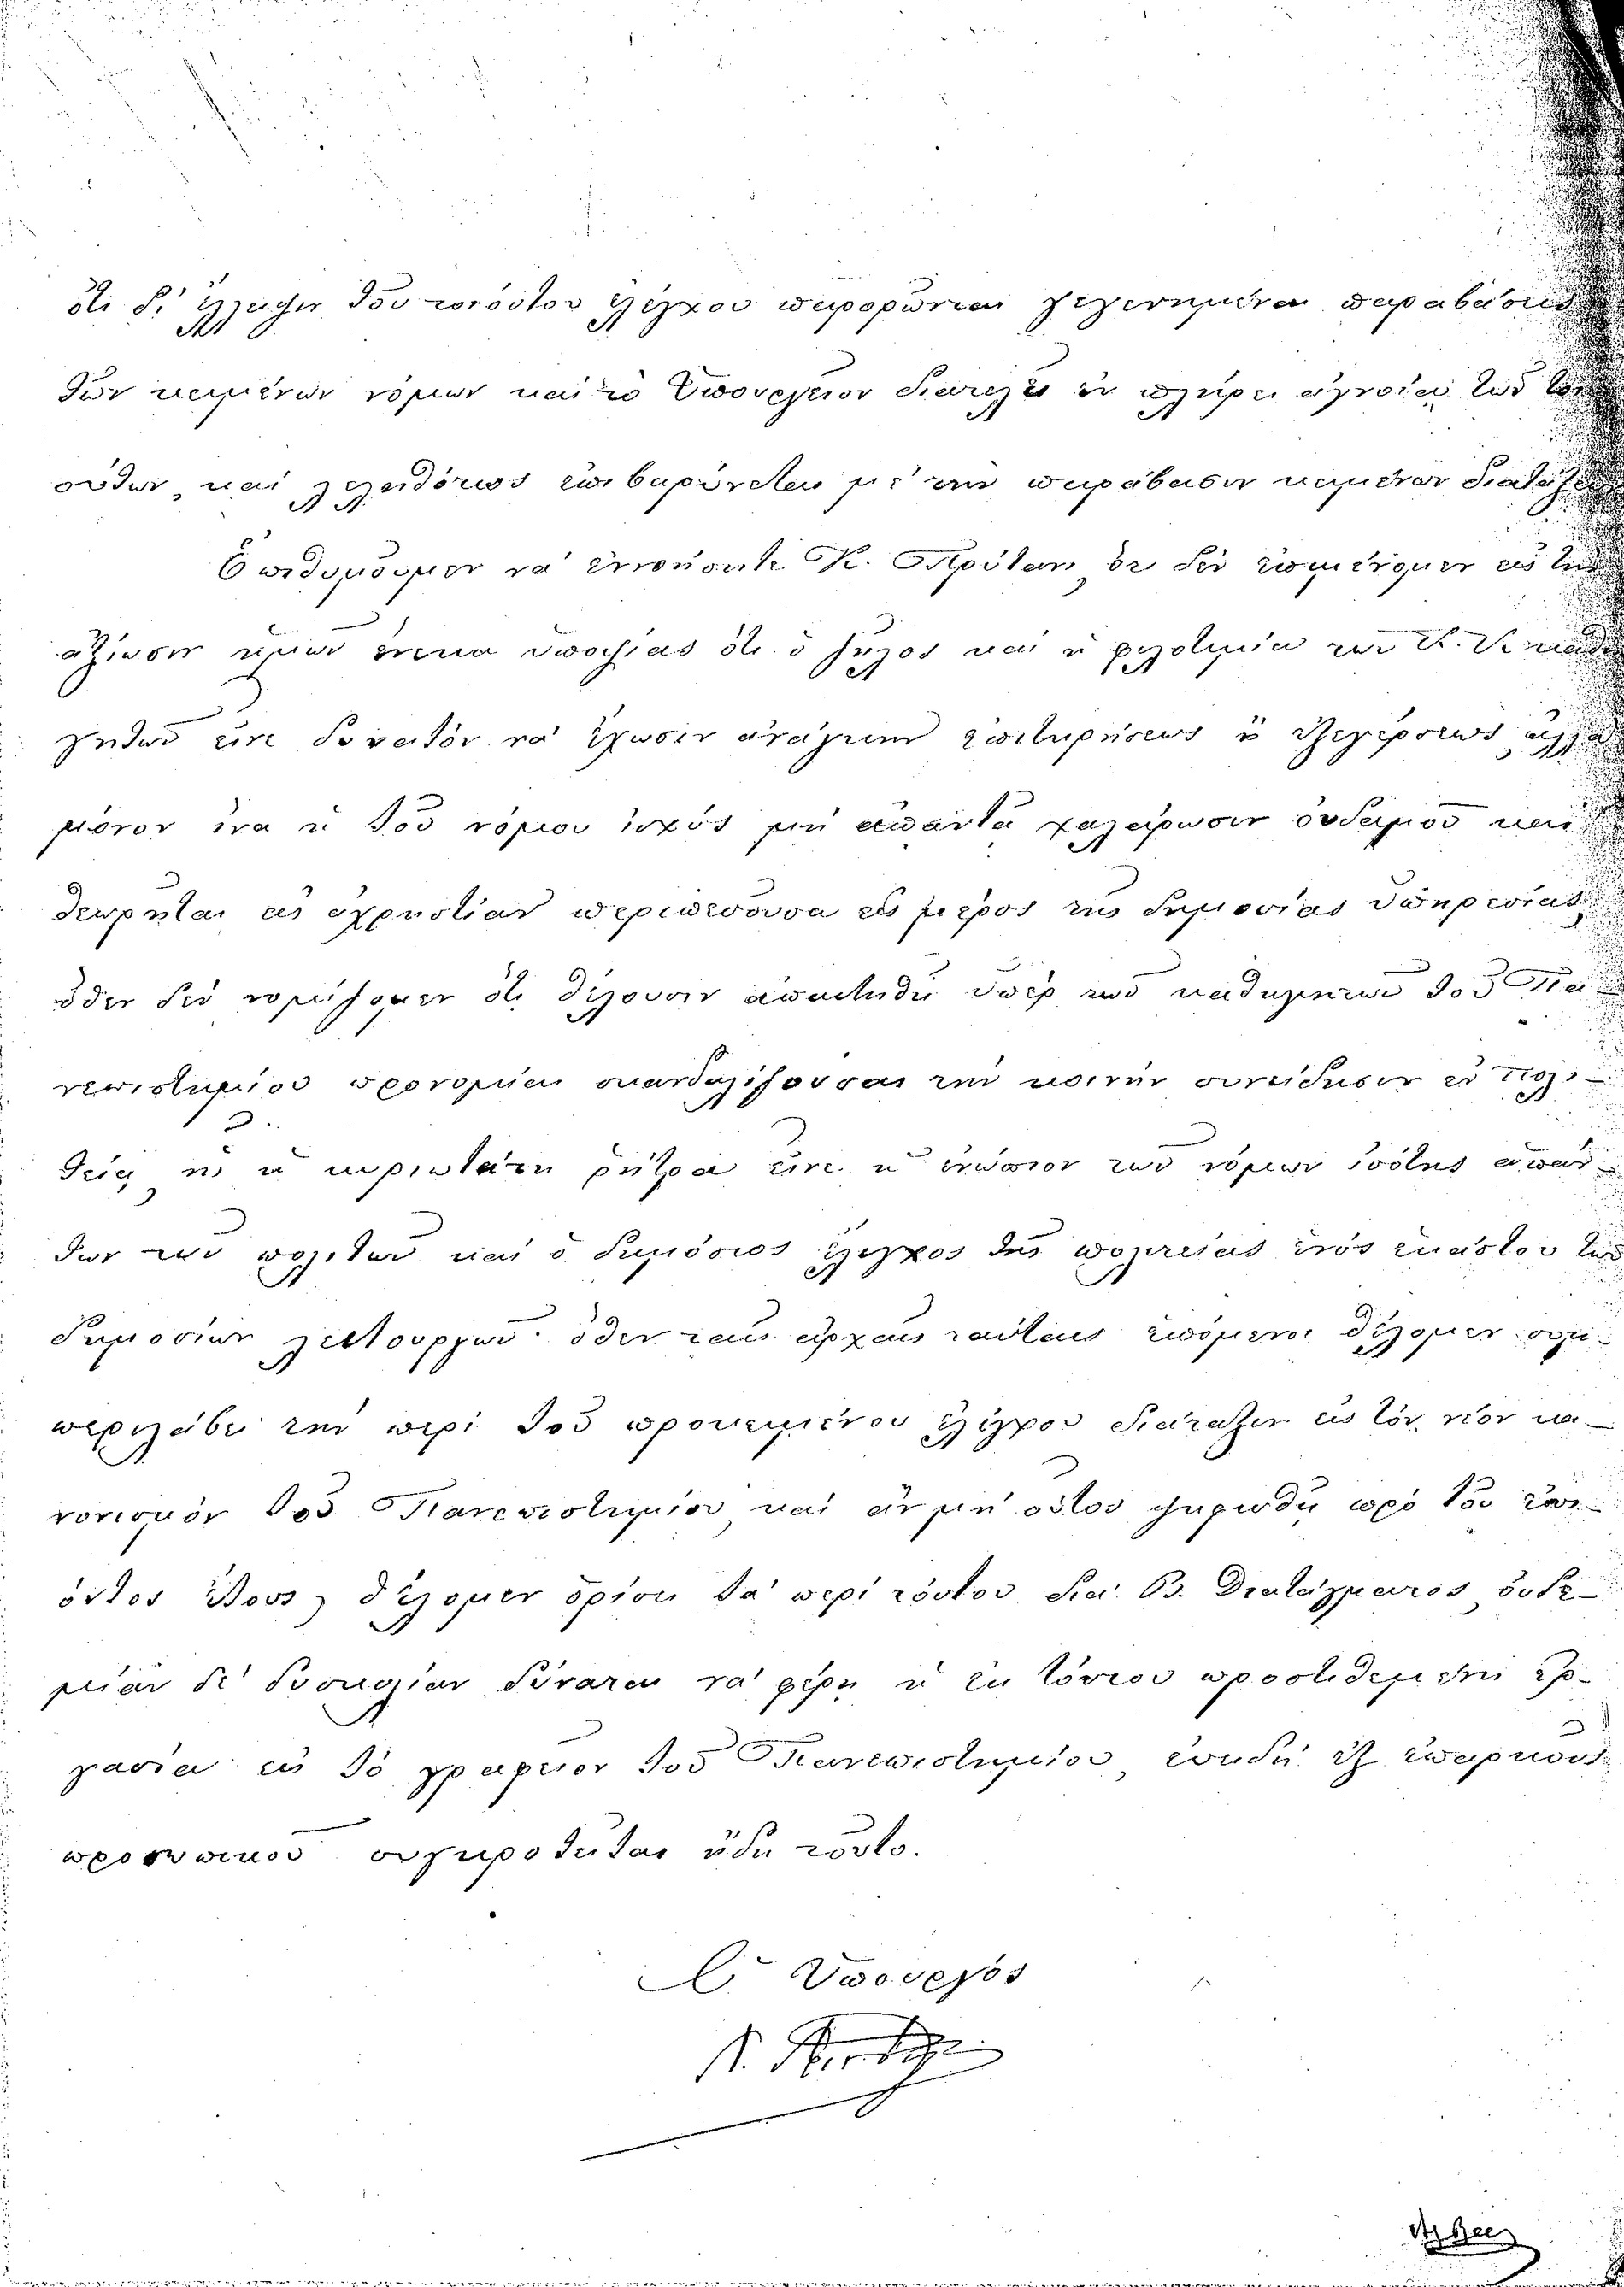 ὅτι δι' ἔλλειψιν τοῦ τοιούτου ἐλέγχου παρορῶνται γεγενημέναι παραβάσεις
τῶν κειμένων νόμων καὶ τὸ Ὑπουργεῖον διατελεῖ ἐν πλήρει ἀγνοίᾳ τῶν τοι
ούτων, καὶ λεληθότως ἐπιβαρύνεται μὲ τὴν παράβασιν κειμένων διατάξεων
Ἐπιθυμοῦμεν νὰ ἐννοήσητε Κ. Πρύτανι, ὅτι δὲν ἐπιμένομεν εἰς τὴν
ἀξίωσιν ἡμῶν ἕνεκα ὑποψίας ὅτι ὁ ζῆλος καὶ ἡ φιλοτιμία τῶν Κ. Κ. καθη
γητῶν εἶνε δυνατὸν νὰ ἔχωσιν ἀνάγκην ἐπιτηρήσεως ἢ ἐξελέγξεως, ἀλλὰ
μόνον ἵνα ἡ τοῦ νόμου ἰσχὺς μὴ ἀπαντᾷ χαλάρωσιν οὐδαμοῦ καὶ
θεωρῆται εἰς ἀχρηστίαν περιπεσοῦσα εἰς μέρος τῆς δημοσίας ὑπηρεσίας,
ὅθεν δὲν νομίζομεν ὅτι θέλουσιν ἀπαιτηθῆ ὑπὲρ τῶν καθηγητῶν τοῦ Πα
νεπιστημίου προνομίαι σκανδαλίζουσαι τὴν κοινὴν συνείδησιν ἐν Πολι-
τείᾳ, ἧς ἡ κυριωτάτη ῥήτρα εἶνε ἡ ἐνώπιον τῶν νόμων ἰσότης ἁπάν-
των τῶν πολιτῶν καὶ ὁ δημόσιος ἔλεγχος τῆς πορείας ἑνὸς ἑκάστου τῶν
δημοσίων λειτουργῶν· ὅθεν ταῖς ἀρχαῖς ταύταις ἑπόμενοι θέλομεν συμ-
περιλάβει τὴν περὶ τοῦ προκειμένου ἐλέγχου διάταξιν εἰς τὸν νέον κα-
νονισμὸν τοῦ Πανεπιστημίου, καὶ ἂν μὴ οὗτος ψηφισθῇ πρὸ τοῦ ἐπι-
όντος ἔτους, θέλομεν ὁρίσει τὰ περὶ τούτου διὰ Β. Διατάγματος, οὐδε-
μίαν δὲ δυσκολίαν δύναται νὰ φέρῃ ἡ ἐκ τούτου προστιθεμένη ἐρ-
γασία εἰς τὸ γραφεῖον τοῦ Πανεπιστημίου, ἐπειδὴ ἐξ ἐπαρκοῦς
προσωπικοῦ συγκροτεῖται ἤδη τοῦτο.
Ὁ Ὑπουργὸς